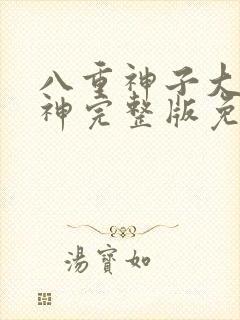 八重神子大
神完整版免
湯寶如